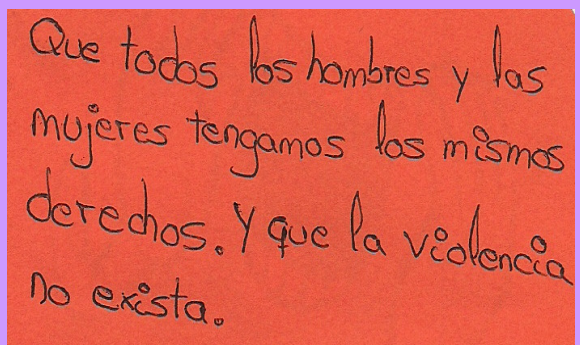 Que todos los hombres y las
mujeres tengamos los mismos
derechos. Y que la violencia
no exista.